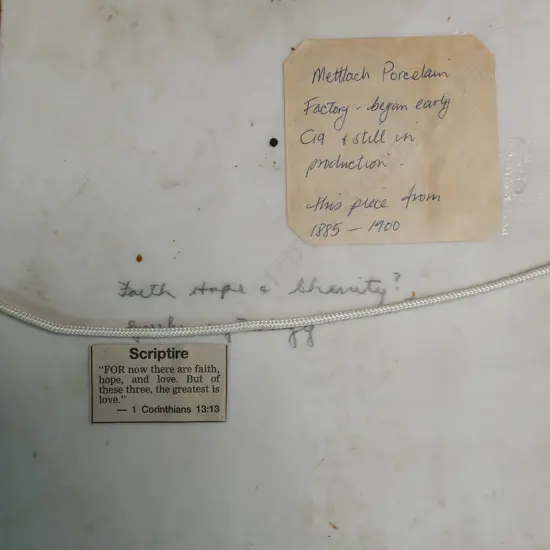 Mettlach Porcelain
Factory - began early
C19 & still in
production -
this piece from
1885 - 1900
Faith Hope & Sharity?
Scriptire
"FOR now there are faith,
hope, and love. But of
these three, the greatest is
love."
— 1 Corinthians 13:13